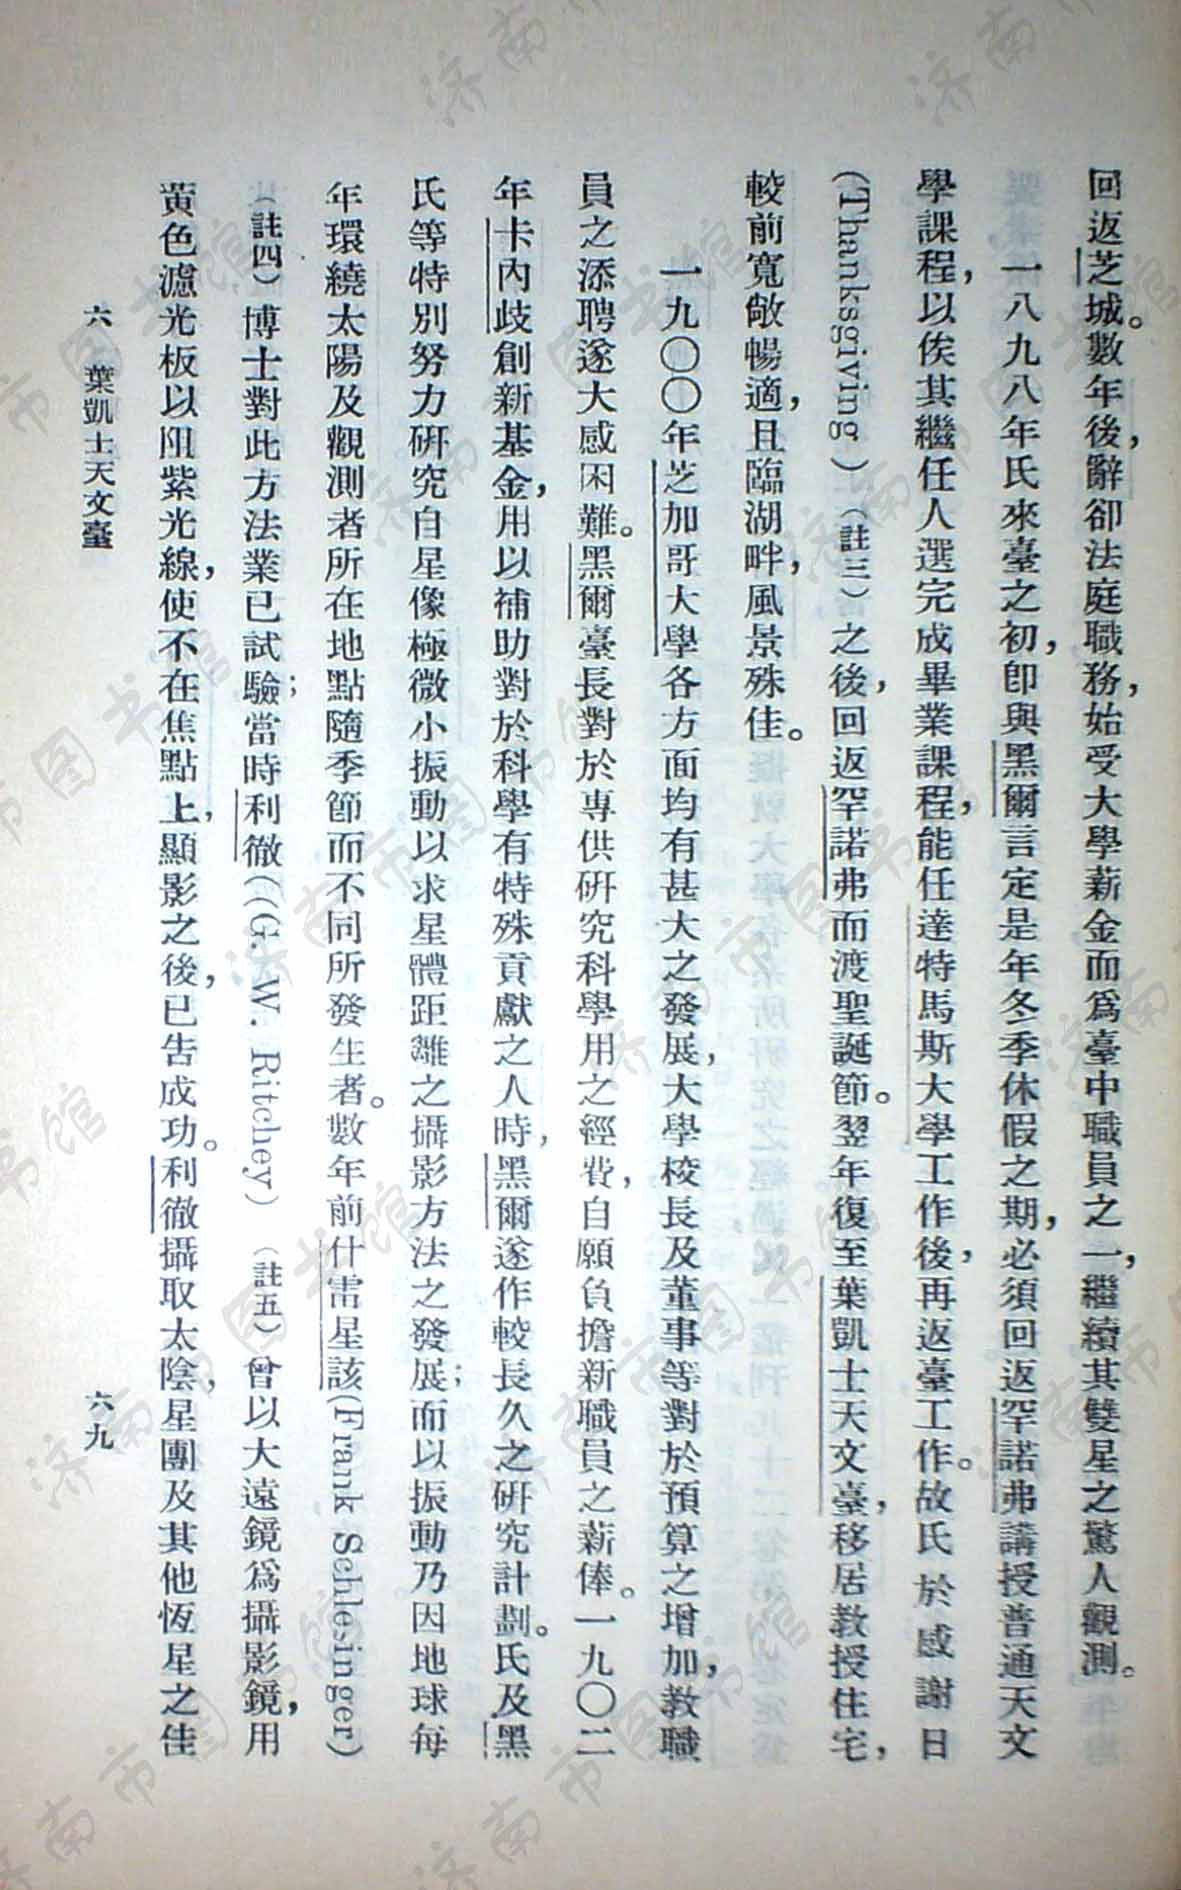 回返芝城。數年後，辭卻法庭職務，始受大學薪金而爲臺中職員之一，繼續其雙星之驚人觀測。
一八九八年氏來臺之初，卽與黑爾言定是年冬季休假之期，必須回返罕諾弗講授普通天文
學課程，以俟其繼任人選完成畢業課程，能任達特馬斯大學工作後，再返臺工作。故氏於感謝日
(Thanksgiving)（註三）之後，回返罕諾弗而渡聖誕節。翌年復至葉凱士天文臺，移居教授住宅，
較前寬敞暢適，且臨湖畔，風景殊佳。
一九〇〇年芝加哥大學各方面均有甚大之發展，大學校長及董事等對於預算之增加，教職
員之添聘遂大感困難。黑爾臺長對於專供研究科學用之經費，自願負擔新職員之薪俸。一九〇二
年卡內歧創新基金，用以補助對於科學有特殊貢獻之人時，黑爾遂作較長久之研究計劃。氏及黑
氏等特別努力研究自星像極微小振動以求星體距離之攝影方法之發展；而以振動乃因地球每
年環繞太陽及觀測者所在地點隨季節而不同所發生者。數年前什雷星該(Frank Schlesinger)
（註四）博士對此方法業已試驗；當時利徹((G. W. Ritchey)（註五）曾以大遠鏡爲攝影鏡，用
黃色濾光板以阻紫光線，使不在焦點上，顯影之後，已告成功。利徹攝取太陰，星團及其他恆星之佳
六 葉凱士天文臺
六九
济南市图书馆